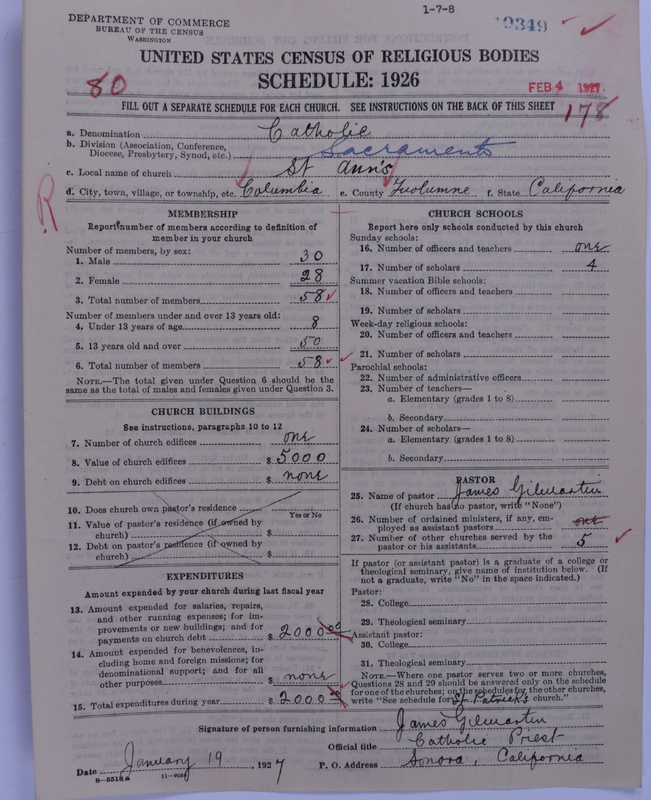 1-7-8
DEPARTMENT OF COMMERCE
BUREAU OF THE CENSUS
WASHINGTON
9349
UNITED STATES CENSUS OF RELIGIOUS BODIES
SCHEDULE: 1926
80
FEB 4 1927
178
FILL OUT A SEPARATE SCHEDULE FOR EACH CHURCH. SEE INSTRUCTIONS ON THE BACK OF THIS SHEET
a. Denomination Catholic
b. Division (Association, Conference, Diocese, Presbytery, Synod, etc.) Sacramento
c. Local name of church St Ann's
d. City, town, village, or township, etc. Columbia e. County Tuolumne f. State California
R
MEMBERSHIP
Report number of members according to definition of
member in your church
Number of members, by sex:
1. Male 30
2. Female 28
3. Total number of members 58
Number of members under and over 13 years old:
4. Under 13 years of age 8
5. 13 years old and over 50
6. Total number of members 58
NOTE.—The total given under Question 6 should be
same as the total of males and females given under Question 3.
CHURCH BUILDINGS
See instructions, paragraphs 10 to 12
7. Number of church edifices one
8. Value of church edifices $ 5000
9. Debt on church edifices $ none
10. Does church own pastor's residence
Yes or No
11. Value of pastor's residence (if owned by
church) $
12. Debt on pastor's residence (if owned by
church) $
EXPENDITURES
Amount expended by your church during last fiscal year
13. Amount expended for salaries, repairs,
and other running expenses; for im-
provements or new buildings; and for
payments on church debt $ 2000 00
14. Amount expended for benevolences, in-
cluding home and foreign missions; for
denominational support; and for all
other purposes $ none
15. Total expenditures during year $ 2000
CHURCH SCHOOLS
Report here only schools conducted by this church
Sunday schools:
16. Number of officers and teachers one
17. Number of scholars 4
Summer vacation Bible schools:
18. Number of officers and teachers
19. Number of scholars
Week-day religious schools:
20. Number of officers and teachers
21. Number of scholars
Parochial schools:
22. Number of administrative officers
23. Number of teachers—
a. Elementary (grades 1 to 8)
b. Secondary
24. Number of scholars—
a. Elementary (grades 1 to 8)
b. Secondary
PASTOR
25. Name of pastor James Gilmartin
(If church has no pastor, write "None")
26. Number of ordained ministers, if any, em-
ployed as assistant pastors one
27. Number of other churches served by the
pastor or his assistants 5
If pastor (or assistant pastor) is a graduate of a college or
theological seminary, give name of institution below. (If
not a graduate, write "No" in the space indicated.)
Pastor:
28. College
29. Theological seminary
Assistant pastor:
30. College
31. Theological seminary
NOTE.—Where one pastor serves two or more churches,
Questions 28 and 29 should be answered only on the schedule
for one of the churches; on the schedules for the other churches,
write "See schedule for St Patrick's church."
Signature of person furnishing information James Gilmartin
Official title Catholic Prest
Date January 19, 1927 P. O. Address Sonora, California
8-5518a